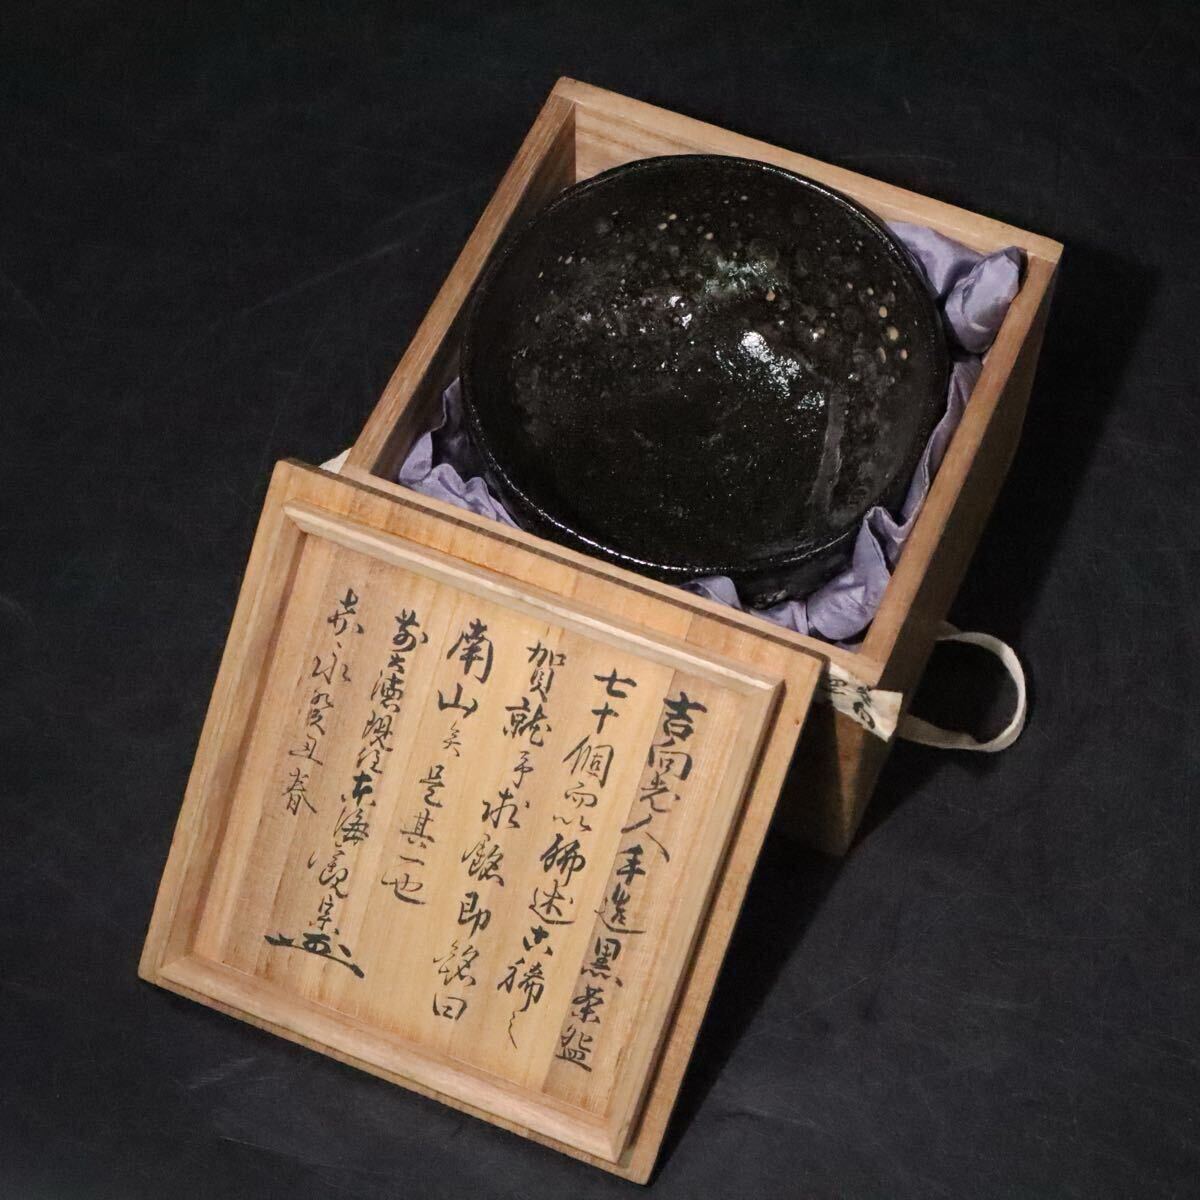 吉向老人手造黒茶盌
七十個而以稀述古稀之
賀就予求銘即銘曰
南山矣是其一也
前大徳現住東海
春